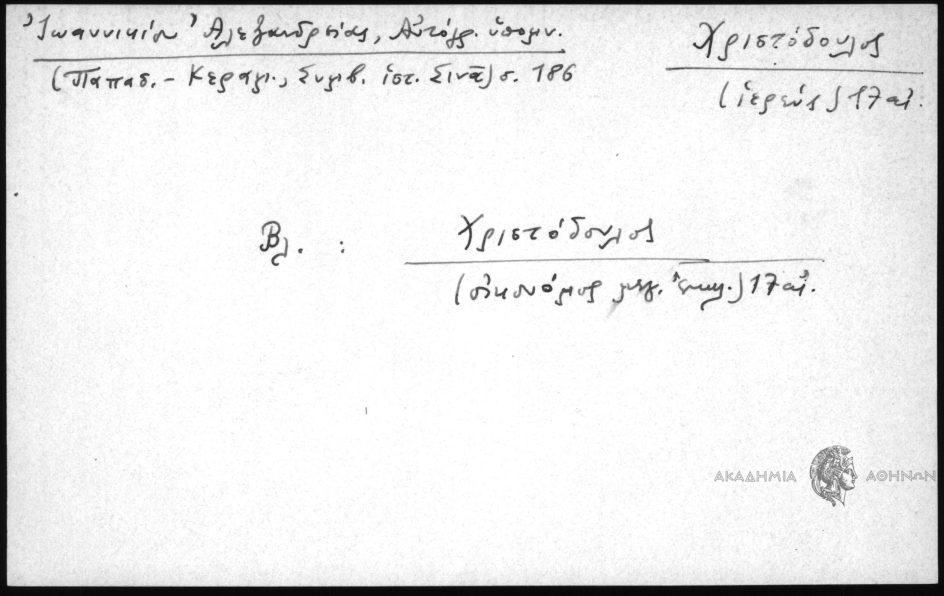 Ἰωαννικίου Ἀλεξανδρείας, Αὐτόγρ. ὑπομν.
(Παπαδ. - Κεραμ., Συμβ. ἱστ. Σινᾶ) σ. 186
Χριστόδουλος
(ἱερεύς) 17 αἰ.
Βλ. : Χριστόδουλος
(οἰκονόμος μεγ. ἐκκλ.) 17 αἰ.
ΑΚΑΔΗΜΙΑ ΑΘΗΝΩΝ